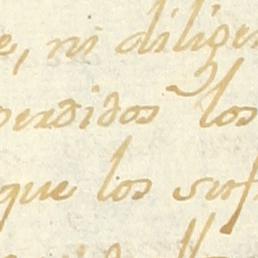 e, ni diligen
perdidos los
que los suf